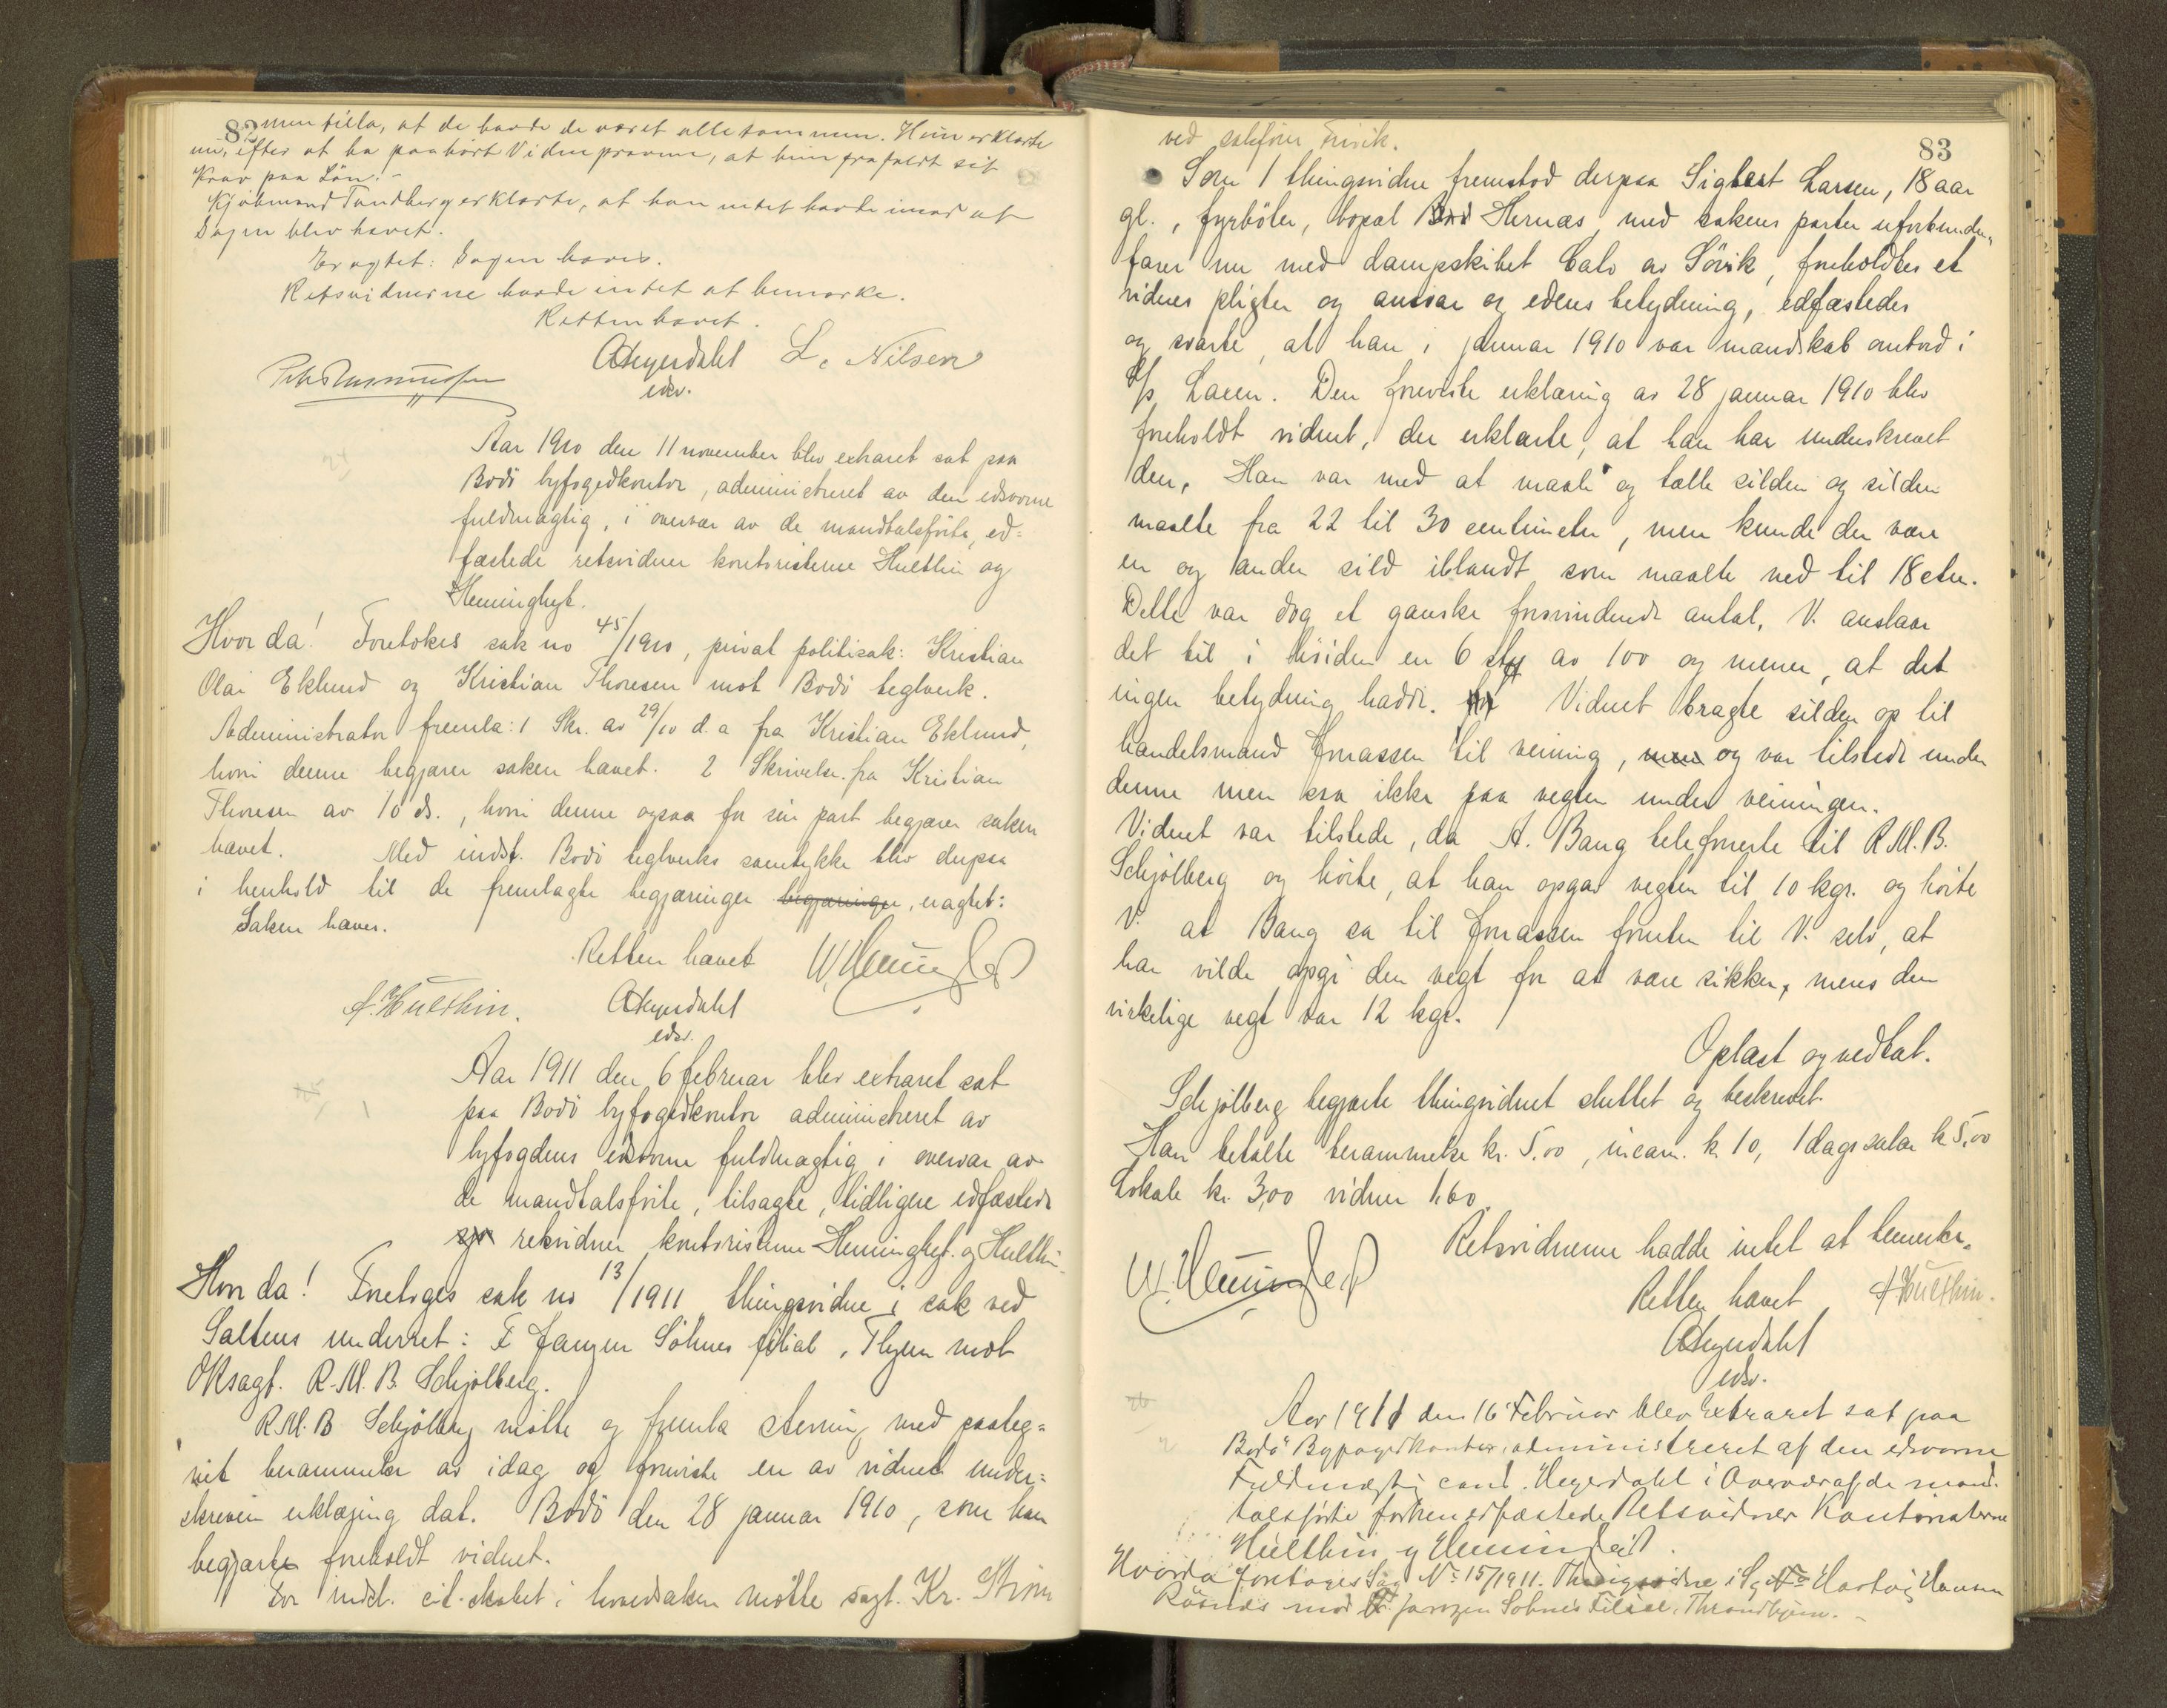 82
men tilla, at de havde de været alle sammen. Hun erklærte
nu, efter at ha paahört Vidneprovene, at hun frafaldt sit
Krav paa Lön.-
Kjöbmand Tandberg erklærte, at han intet havde imod at
Sagen blev hævet.
Eragtet: Sagen hæves.
Retsvidnerne havde intet at bemærke.
Retten hævet.
L. Nilsen
edsv.
Aar 1910 den 11 november blev extraret sat paa
Bodö byfogedkontor, administreret av den edsvorne
fuldmægtig, i overvær av de mandtalsförte, ed=
fæstede retsvidner kontoristerne Hulthin og
Heminghyt.
Hvorda! Foretokes sak no 45/1910, privat politisak: Kristian
Olai Eklund og Kristian Thoresen mot Bodö teglverk.
Administrator fremla: 1 Skr. av 29/10 d.a fra Kristian Eklund,
hvori denne begjærer saken hævet. 2 Skrivelse fra Kristian
Thoresen av 10 ds., hvori denne ogsaa for sin part begjærer saken
hævet. Med indst. Bodö teglverks samtykke blev derpaa
i henhold til de fremlagte begjæringer begjæringer, eragtet:
Saken hæves.
Retten hævet
A. Hulthin.
edsv.
Aar 1911 den 6 februar blev extraret sat
paa Bodö byfogedkontor administreret av
byfogdens edsvorne fuldmægtig i overvær av
de mandtalsförte, tilsagte, tidligere edfæstede
retsvidner kontoristerne Heminghyt. og Hulthin
Hvorda! Foretoges sak no 13/1911 thingsvidne i sak ved
Saltens underret: F Jangen Söhnes filial, Thjem mot
ORsagf. R.M.B. Schjölberg.
R.M.B Schjölberg mötte og fremla stevning med paateg=
net berammelse av idag og foreviste en av vidnet under=
skreven erklæring dat. Bodö den 28 januar 1910, som han
begjærte foreholdt vidnet.
For indst. cit.skabet i hovedsaken mötte sagf. Kr. Strøm
83
ved sakförer
Som 1 thingsvidne fremstod derpaa Sigbart Larsen, 18 aar
gl., fyrböter, bopæl Bod Hernæs med sakens parter uforbunden,
farer nu med dampskibet Calo av Sörvik, foreholdtes et
vidnes pligter og ansvar og edens betydning, edfæstedes
og svarte, at han i januar 1910 var mandskab ombord i
S/s Laxen. Den foreviste erklæring av 28 januar 1910 blev
foreholdt vidnet, der erklærte, at han har underskrevet
den. Han var med at maale og tælle silden og silden
maalte fra 22 til 30 centimeter, men kunde der være
en og anden sild iblandt som maalte ned til 18 ctm.
Dette var dog et ganske forsvindende antal. V. anslaar
det til i höiden en 6 stk av 100 og mener, at det
ingen betydning hadde. Vidnet bragte silden op til
handelsmand Jonassen til veining, men og var tilstede under
denne men saa ikke paa vegten under veiningen.
Vidnet var tilstede, da A. Bang telefonerte til R.M.B.
Schjölberg og hörte, at han opgav vegten til 10 kgr. og hörte
V. at Bang sa til Jonassen foruten til V. selv, at
han vilde opgi den vegt for at være sikker, mens den
virkelige vegt var 12 kgr.
Oplæst og vedtat.
Schjölberg begjærte thingsvidnet sluttet og beskrevet.
Han betalte berammelse kr. 5,00, incam. k 10, 1dags salær k 5,00
Lokale kr. 3,00 vidner 1,60.
Retsvidnerne hadde intet at bemerke.
Retten hævet
A. Hulthin.
edsv.
Aar 1911 den 16 Februar blev Extraret sat paa
Bodö Byfogedkontor, administreret af den edsvorne
Fuldmægtig cand. Hegerdahl i Overvær af de mand-
talsförte forhen edfæstede Retsvidner Kontoristerne
Hulthin og
Hvorda foretoges Sag No 15/1911. Thingsvidne i Sag Hartvig Hansen
Rösnæs mod Jangen Sohnes Filial, Throndhjem.-